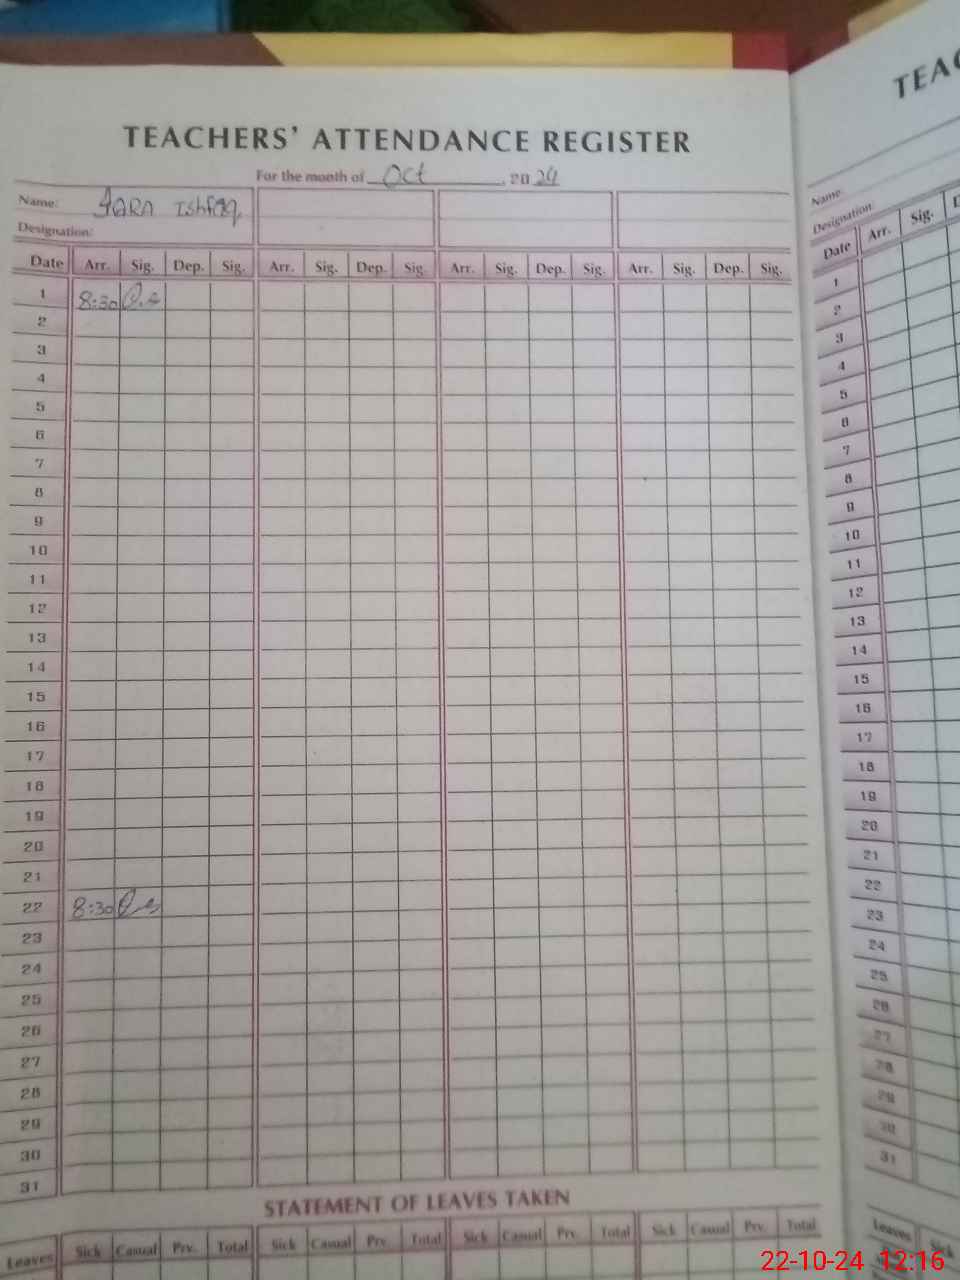 TEACHERS' ATTENDANCE REGISTER
For the month of Oct, 2024
Name: IQRA Ishfaq
Designation:
Date Arr. Sig. Dep. Sig. Arr. Sig. Dep. Sig. Arr. Sig. Dep. Sig. Arr. Sig. Dep. Sig.
1 8:30
2
3
4
5
6
7
8
9
10
11
12
13
14
15
16
17
18
19
20
21
22 8:30
23
24
25
26
27
28
29
30
31
STATEMENT OF LEAVES TAKEN
Leaves Sick Casual Prv. Total Sick Casual Prv. Total Sick Casual Prv. Total Sick Casual Prv. Total
TEAC
Name:
Designation:
Date Arr. Sig. D
1
2
3
4
5
6
7
8
9
10
11
12
13
14
15
16
17
18
19
20
21
22
23
24
25
26
27
28
29
30
31
Leaves Sick
22-10-24 12:16